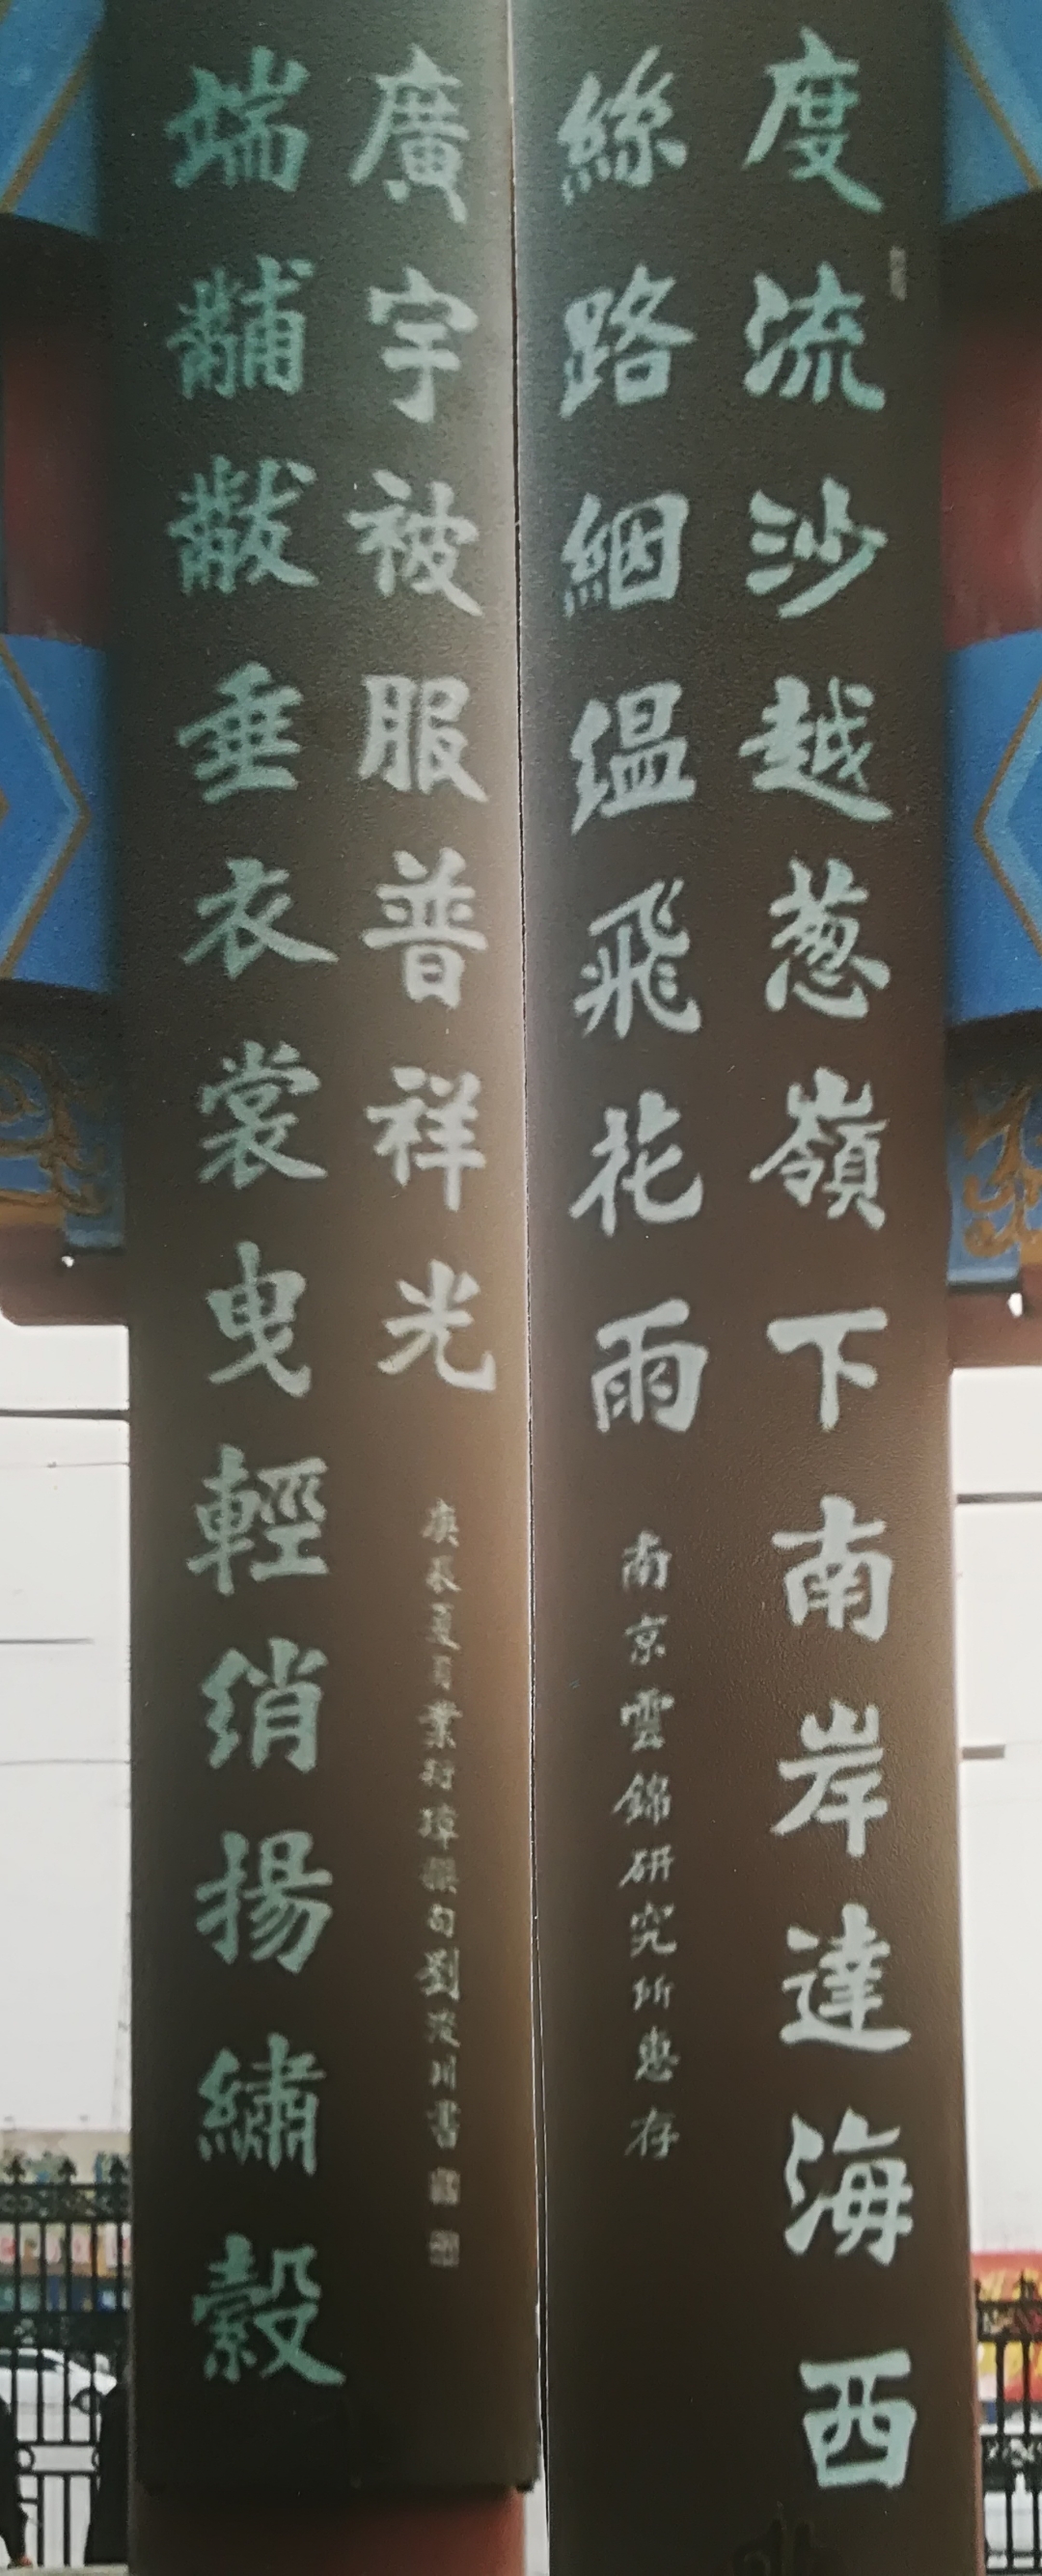 度流沙越葱嶺下南岸達海西
絲路絪緼飛花雨
南京雲錦研究所惠存
端黼黻垂衣裳曳輕綃揚繡縠
廣宇被服普祥光
庚辰夏月業衍璋撰句劉浚川書